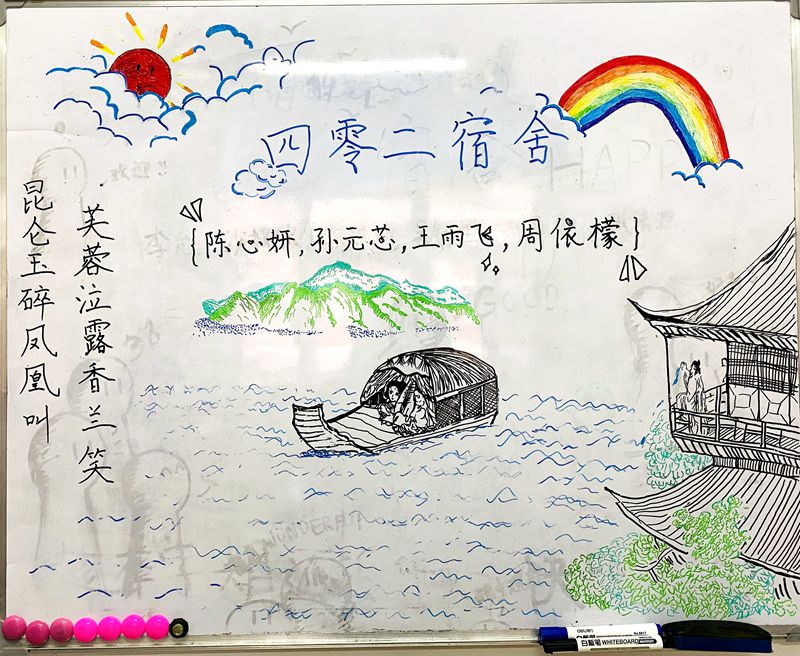 四零二宿舍
{陈心妍,孙元芯,王雨飞,周依檬}
昆仑玉碎凤凰叫
芙蓉泣露香兰笑
欢迎!!
HAPP
GOOD
WONDERFUL
白板笔 WHITEBOARD